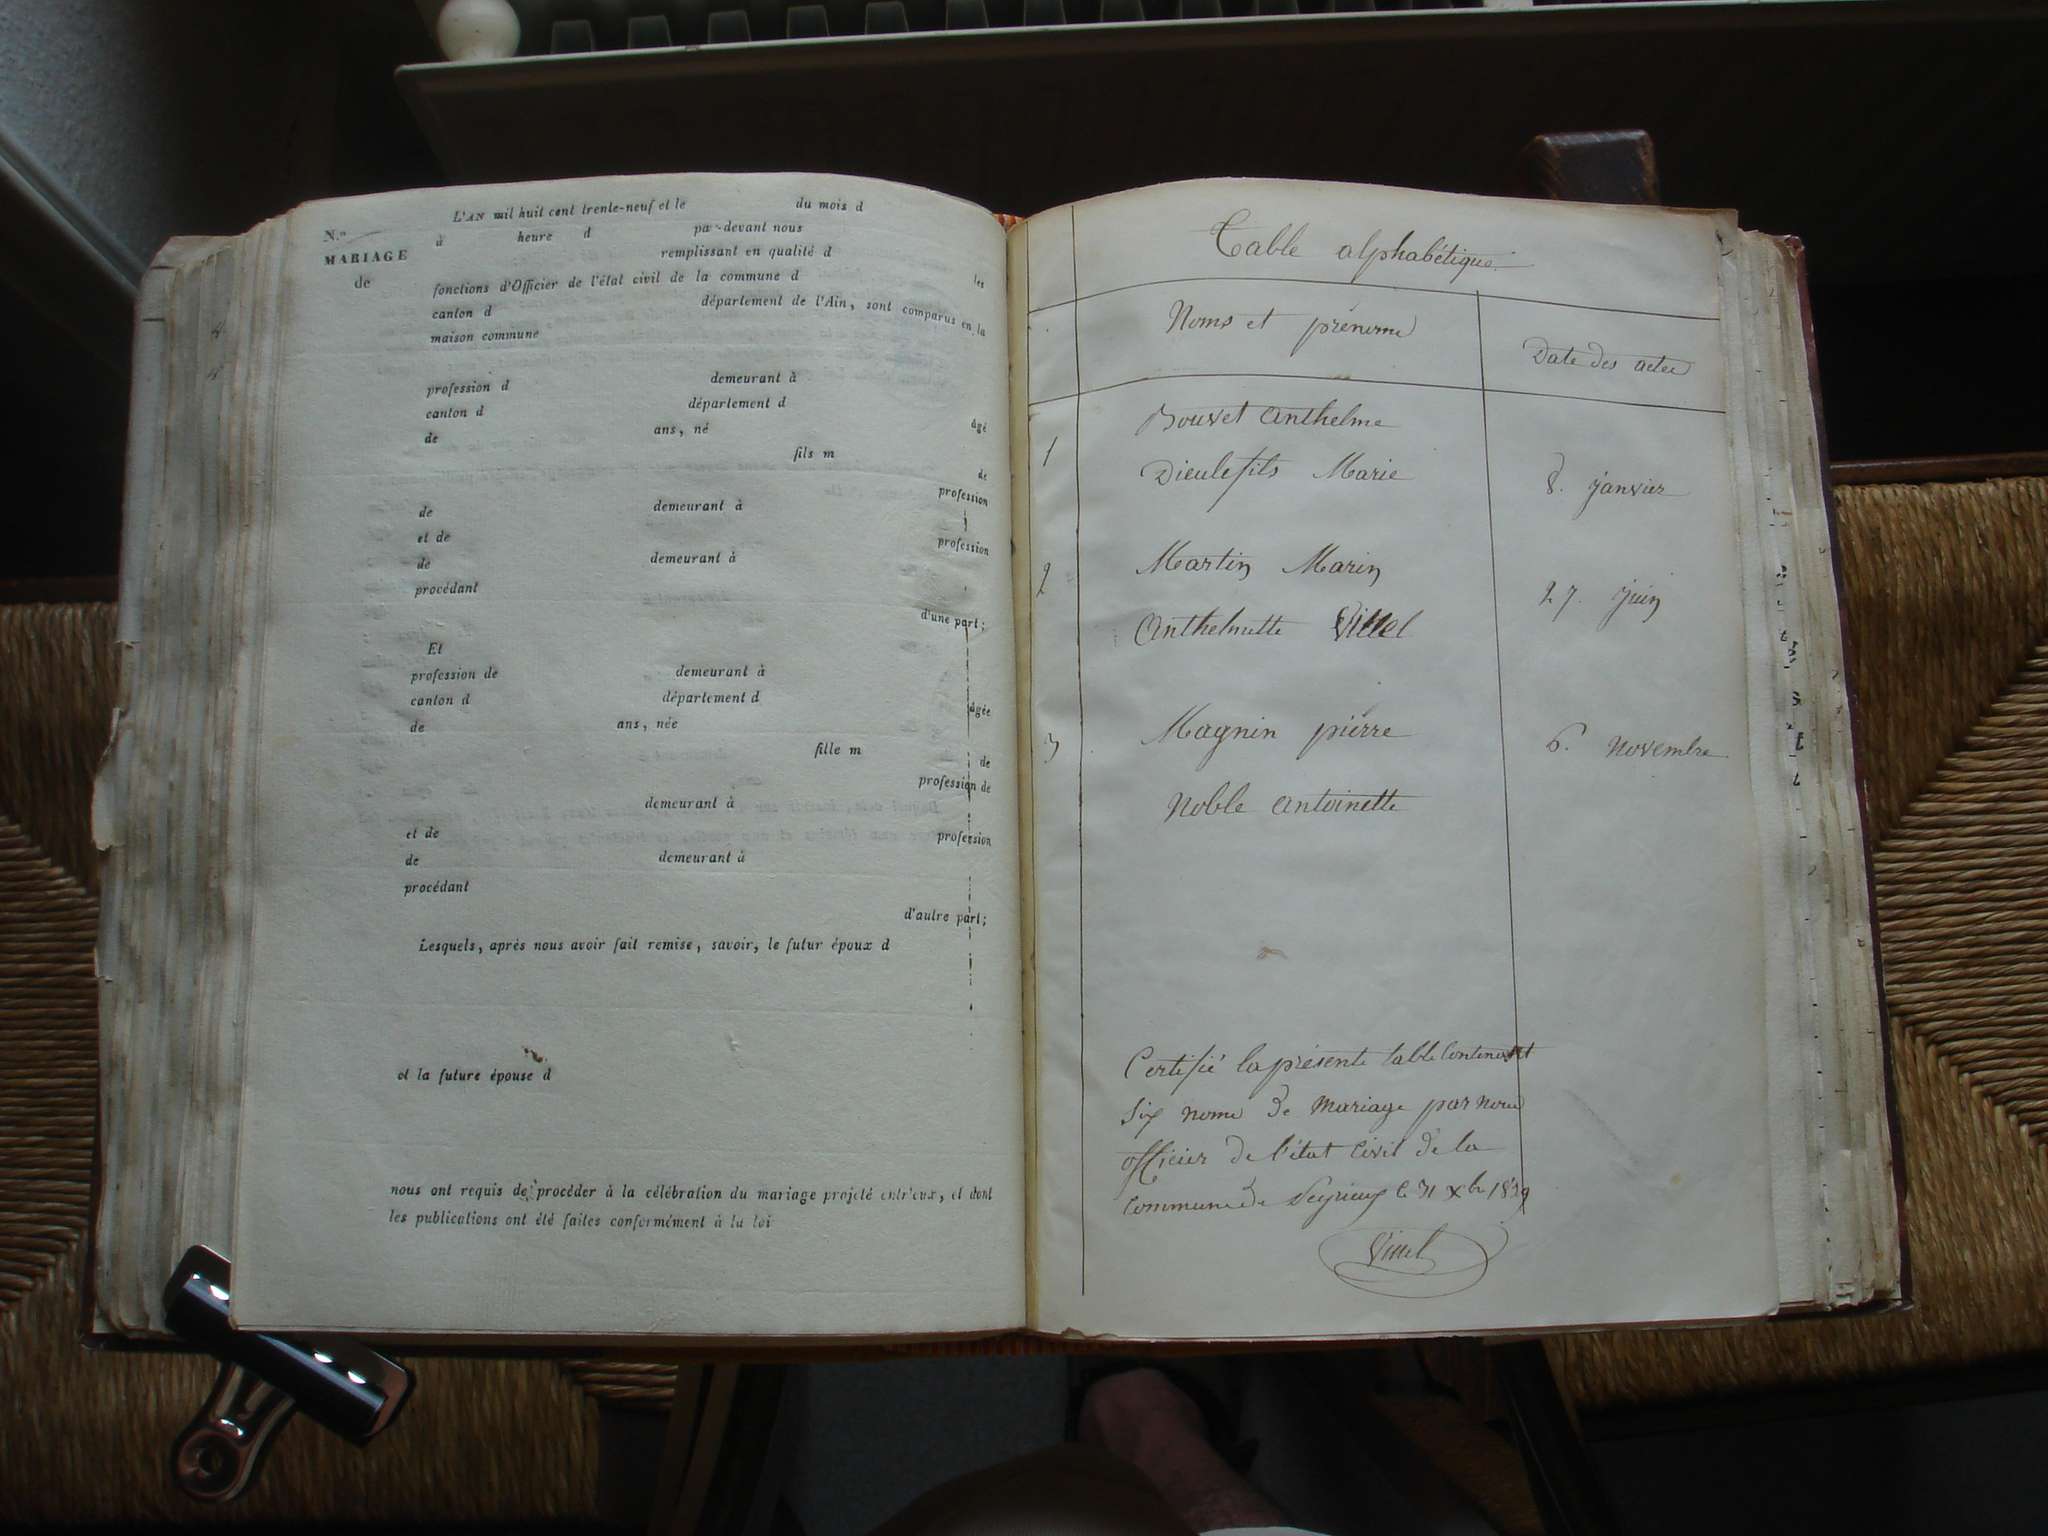 L'AN mil huit cent trente-neuf et le du mois d
N.o
à heure d par-devant nous
MARIAGE
remplissant en qualité d les
de
fonctions d'Officier de l'état civil de la commune d
canton d département de l'Ain, sont comparus en la
maison commune
profession d demeurant à
canton d département d
de ans, né âgé
fils m de
profession
de demeurant à
et de profession
de demeurant à
procédant
d'une part;
Et
profession de demeurant à
canton d département d
de ans, née âgée
fille m de
profession de
demeurant à
et de profession
de demeurant à
procédant
d'autre part;
Lesquels, après nous avoir fait remise, savoir, le futur époux d
et la future épouse d
nous ont requis de procéder à la célébration du mariage projeté entr'eux, et dont
les publications ont été faites conformément à la loi
Table alphabétique
Noms et prénoms
Date des actes
Bouvet Anthelme
1
Dieulefils Marie 8. janvier
2 Martin Marin
27. juin
Anthelmette Vittel
3 Magnin pierre 6. Novembre
Noble Antoinette
Certifié la présente table Contenant
Six noms de Mariage par nous
officier de l'état Civil de la
Commune de le 31 Xbre 1839